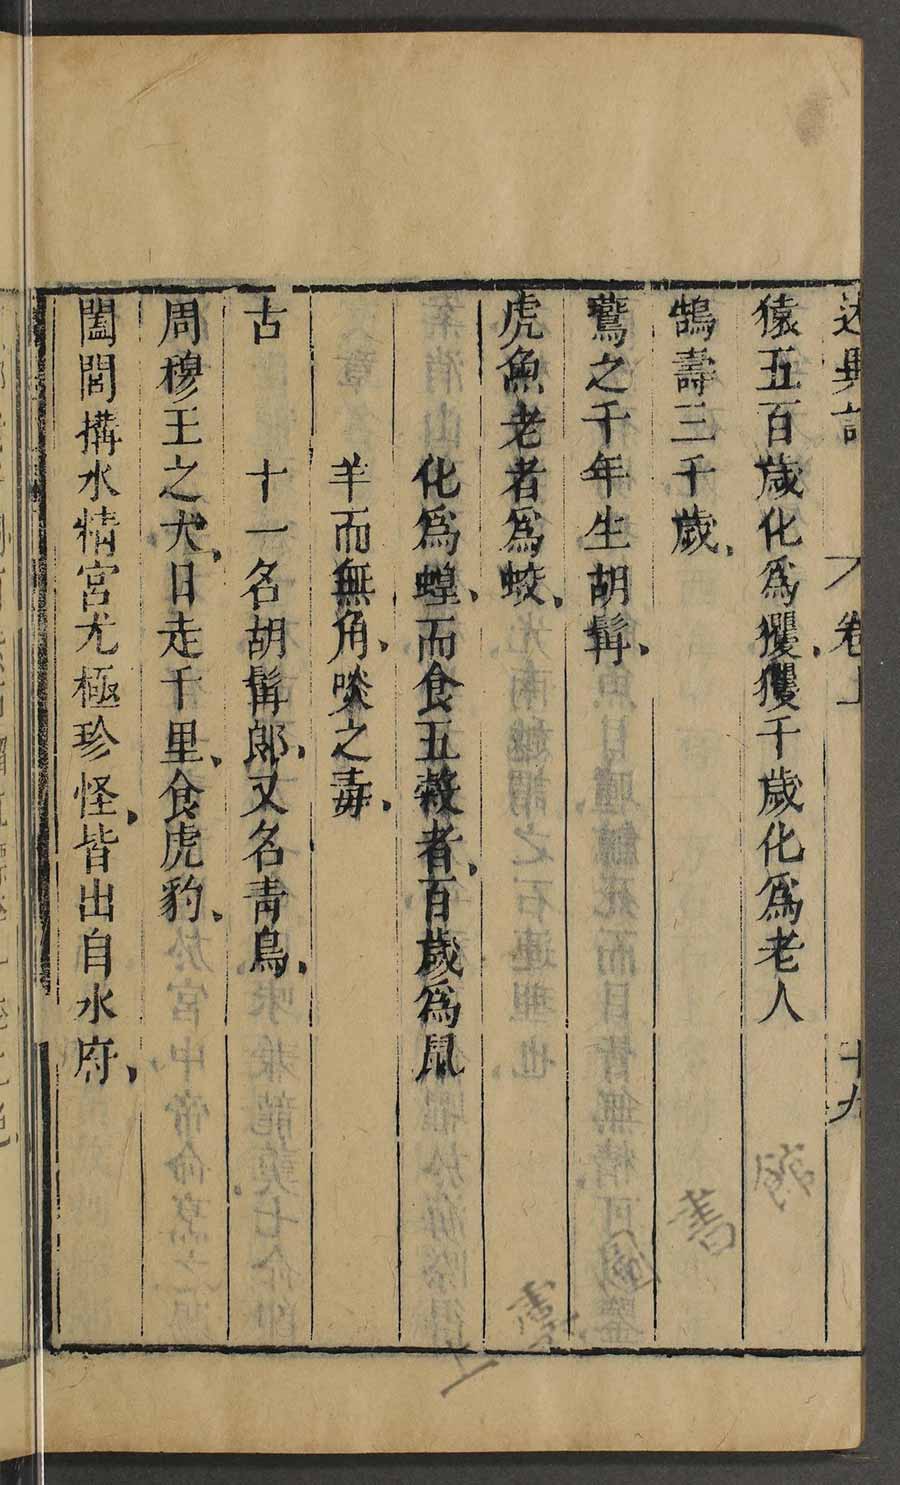 述異記 卷上 十九
猿五百歲化爲玃玃千歲化爲老人
鵠壽三千歲、
鷰之千年生胡髯、
虎魚老者爲蛟、
化爲蝗、而食五穀者、百歲爲鼠
羊而無角、啖之毒、
古 十一名胡髯郎、又名青烏、
周穆王之犬、日走千里、食虎豹、
闔閭搆水精宮尤極珍怪、皆出自水府、